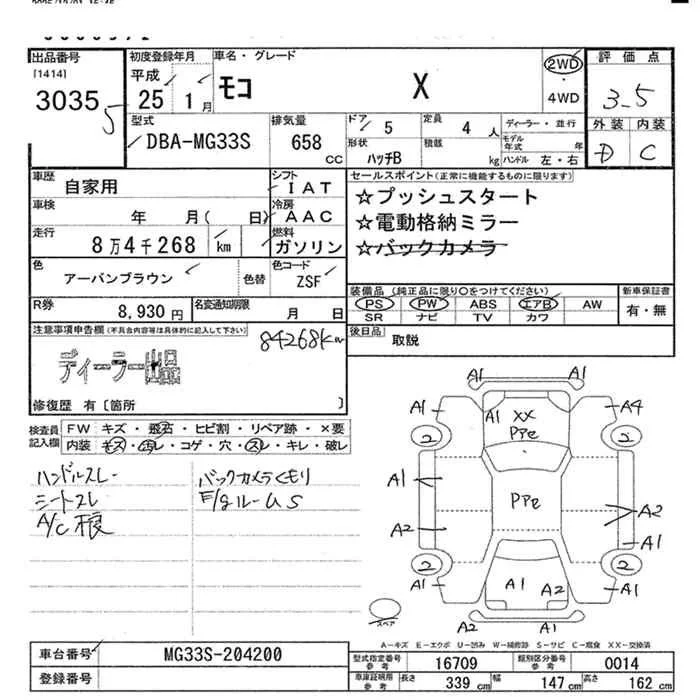 出品番号
[1414]
3035
5
初度登録年月
平成
25 1月
車名・グレード
モコ X
2WD
・
4WD
評価点
3.5
外装 内装
D C
型式
DBA-MG33S
排気量
658 CC
ドア 5
形状 ハッチB
定員 4人
積載 kg
ディーラー・並行
モデル年式 年
ハンドル 左・右
車歴 自家用
シフト IAT
車検 年 月( 日)
冷房 AAC
走行 8万4千268 km
燃料 ガソリン
色 アーバンブラウン 色替
色コード ZSF
R券 8,930円
名変通知期限 月 日
セールスポイント(正常に機能するものに限ります)
☆プッシュスタート
☆電動格納ミラー
☆バックカメラ
装備品 (純正品に限り○をつけてください)
PS PW ABS エアB AW
SR ナビ TV カワ
新車保証書
有・無
後日品 取説
注意事項申告欄(不具合内容等は具体的に記入して下さい)
84268km
ディーラー出品
修復歴 有〔箇所 〕
検査員記入欄
FW キズ・飛石・ヒビ割・リペア跡・×要
内装 キズ・汚レ・コゲ・穴・スレ・キレ・破レ
ハンドルスレ
シートスレ
A/C不良
バックカメラくもり
E/gルームS
A1 A1
A1 A1 A4
XX
PPe
2 2
A1
PPe
A2
A2
A1
2 2
A1 A1 A2 A1
A2 A1
スペア
A－キズ E－エクボ U－凹み W－補修跡 S－サビ C－腐食 XX－交換済
車台番号 MG33S-204200
登録番号
型式指定番号参考 16709
類別区分番号参考 0014
車庫証明用参考 長さ 339 cm 幅 147 cm 高さ 162 cm